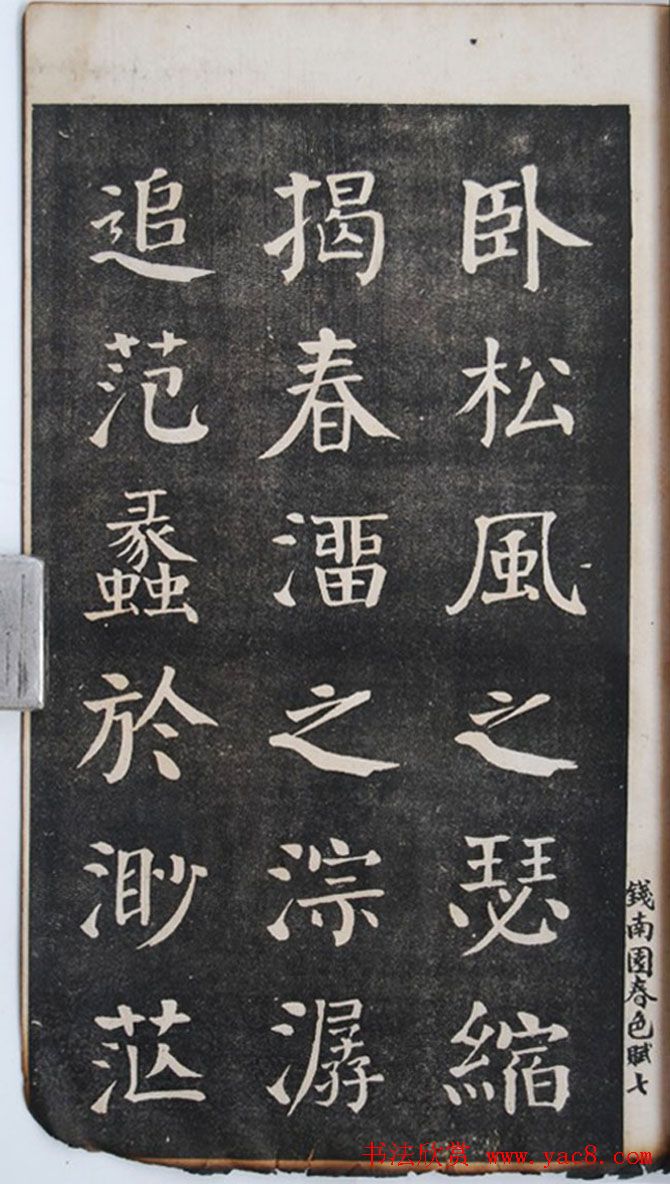 卧松風之瑟縮
揭春溜之淙潺
追范蠡於渺茫
錢南園春色賦 七
书法欣赏 www.yac8.com